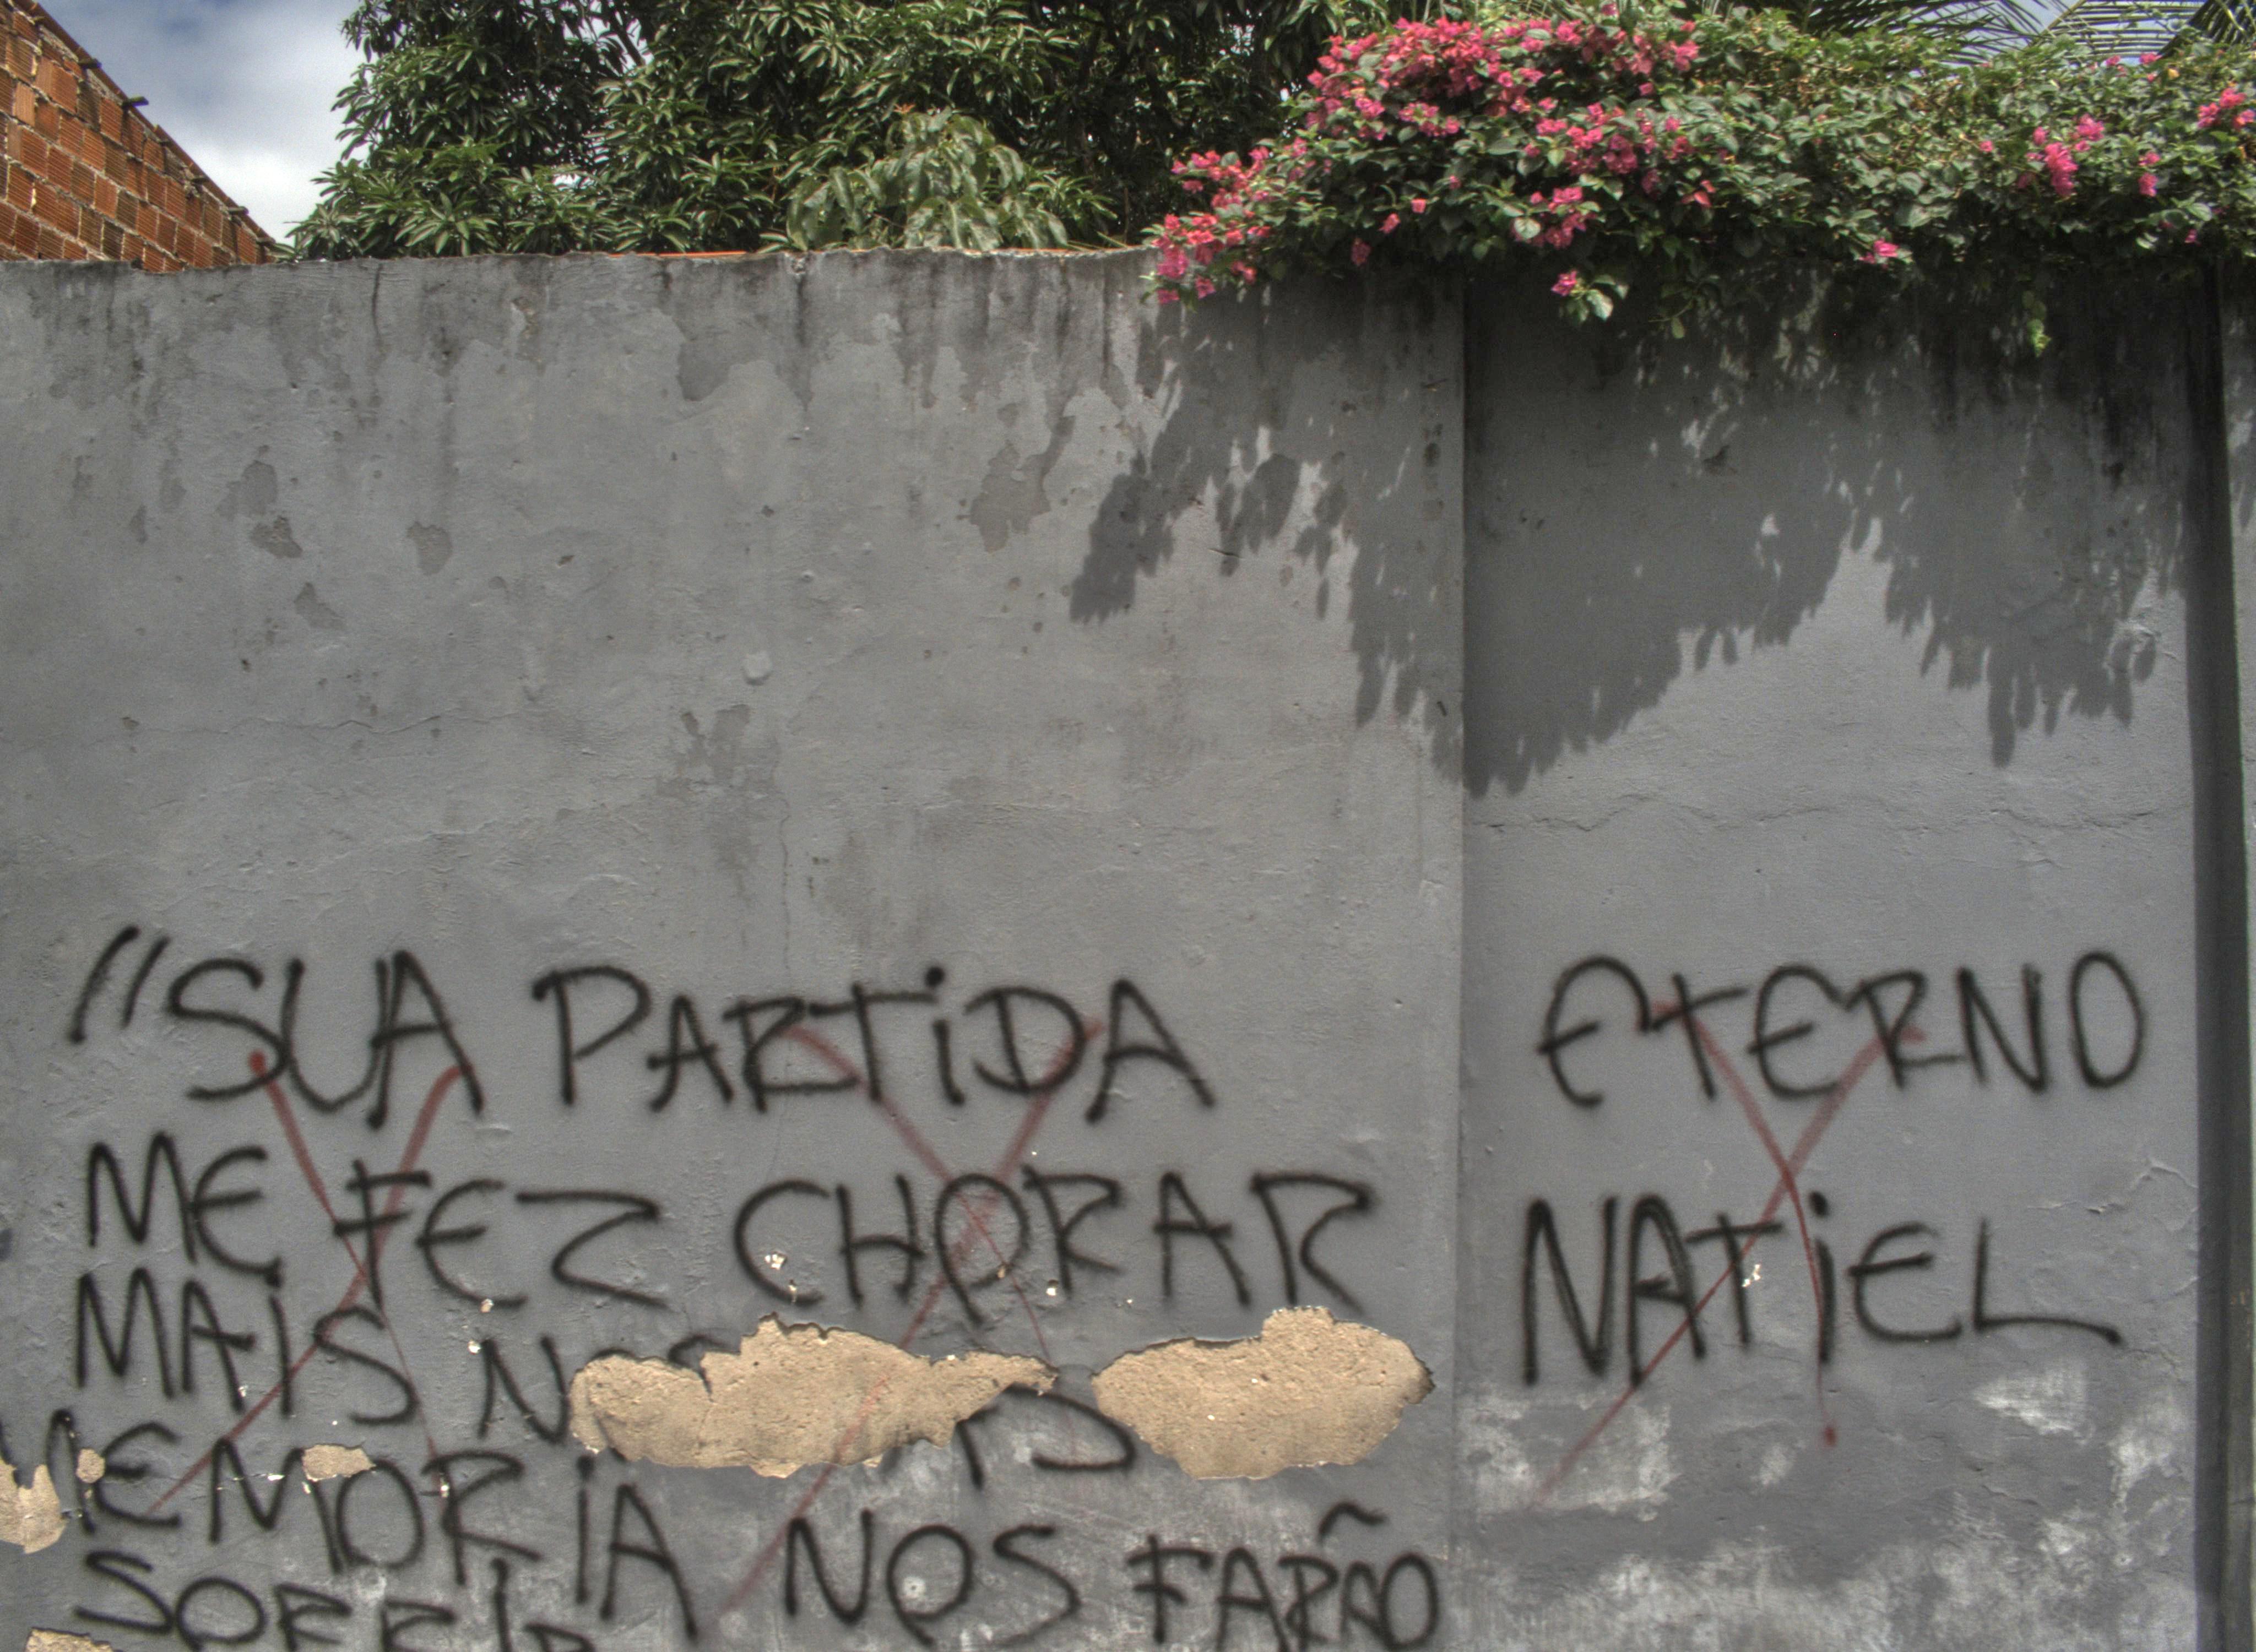 "SUA PARTIDA
ME FEZ CHORAR
MAIS
MEMORIA NOS FARÃO
SORRIR
ETERNO
NATIEL